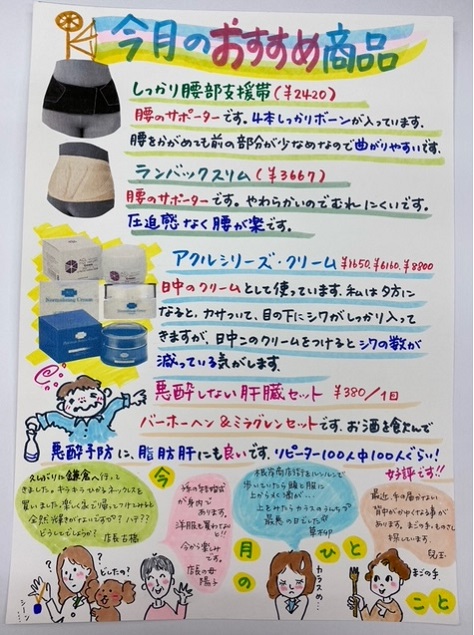 今月のおすすめ商品
しっかり腰部支援帯(¥2420)
腰のサポーターです。4本しっかりボーンが入っています。
腰をかがめても前の部分が少なめなので曲がりやすいです。
ランバックスリム(¥3667)
腰のサポーターです。やわらかいのでむれにくいです。
圧迫感なく腰が楽です。
アクルシリーズ・クリーム ¥1650.¥6160.¥8800
日中のクリームとして使っています。私は夕方に
なると、カサついて、目の下にシワがしっかり入って
きますが、日中このクリームをつけるとシワの数が
減っている気がします。
悪酔しない肝臓セット ¥380/1日
バーホーヘン&ミラグレンセットです。お酒を飲んで
悪酔予防に、脂肪肝にも良いです。リピーター100人中100人ぐらい!
好評です!!
久しぶりに鎌倉へ行って
きました。キラキラひかるネックレスを
買いました。楽しく家で
どうしてでしょう?
店長
?
?
どしたの?
シーン…
今
月
の
ひと
こと
身内で
あります。
洋服を買わなと
と!!
今から楽しみ
です。
店長の母
陽子
歩いていたら
上から
上をみたらカラスのうんち
最悪の日でした
カラスの…
最近、手の届かない
背中がかゆくなる事が
あります。まごの手
探しています。
まごの手